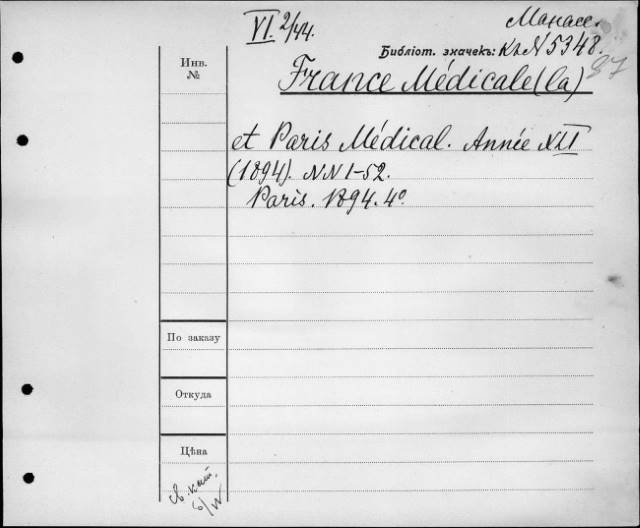 VI. 2/44.
Манасе.
Библіот. значекъ: К № 5348.
37
Инв.
№
France Médicale (la)
et Paris Médical. Année XLI
(1894). NN 1-52.
Paris. 1894. 4°.
По заказу
Откуда
Цѣна
св. кат.